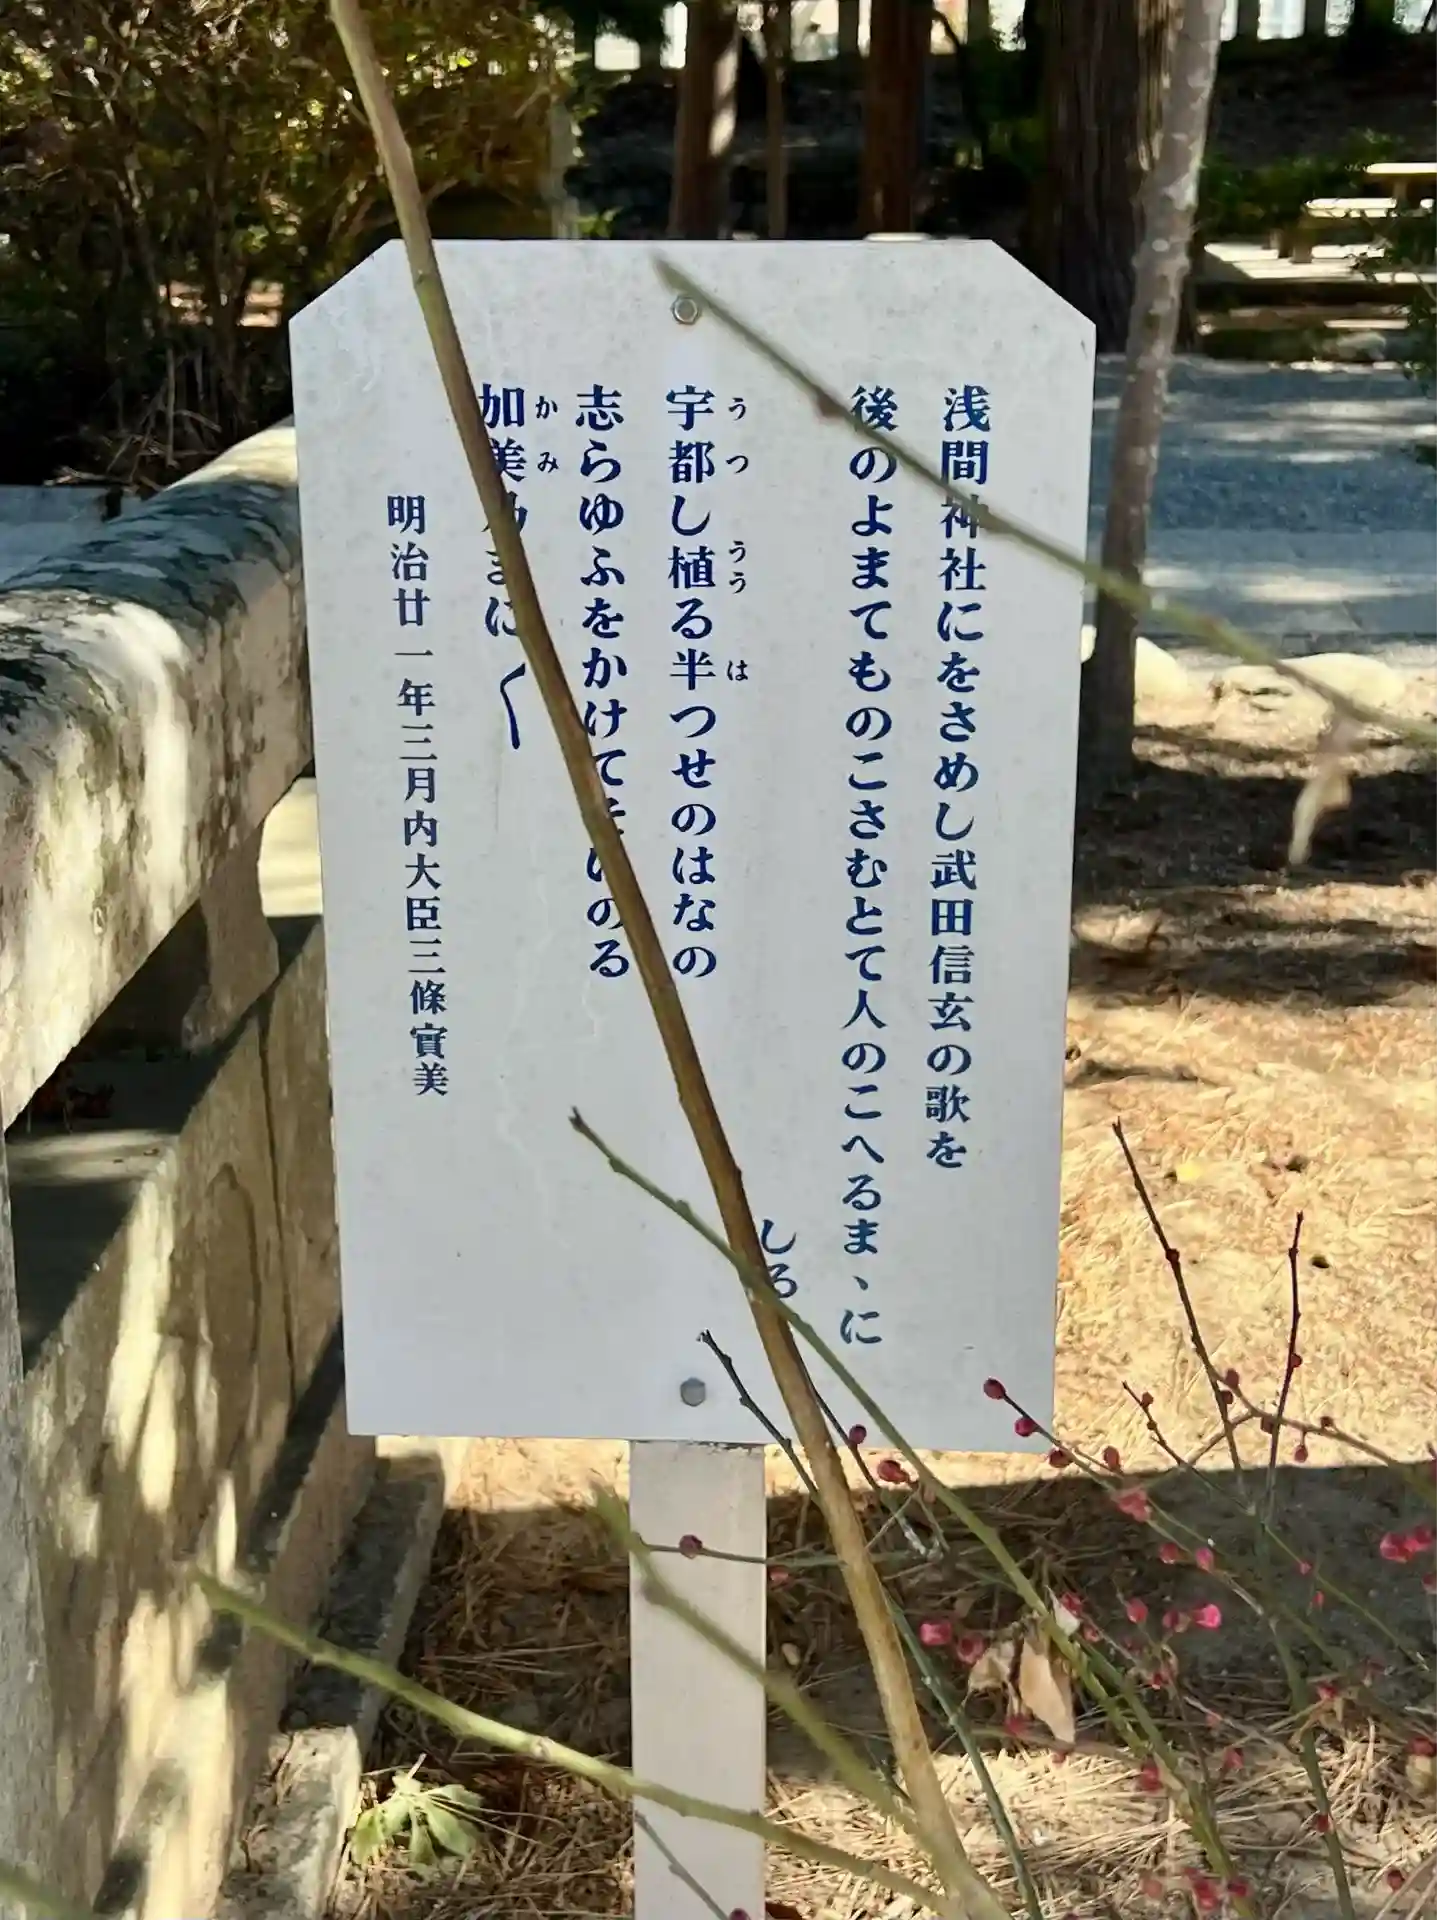 浅間神社にをさめし武田信玄の歌を
後のよまてものこさむとて人のこへるまゝに
しる
宇都し植る半つせのはなの
うつ うう は
志らゆふをかけてそいのる
加美乃まに〱
かみ
明治廿一年三月内大臣三條實美